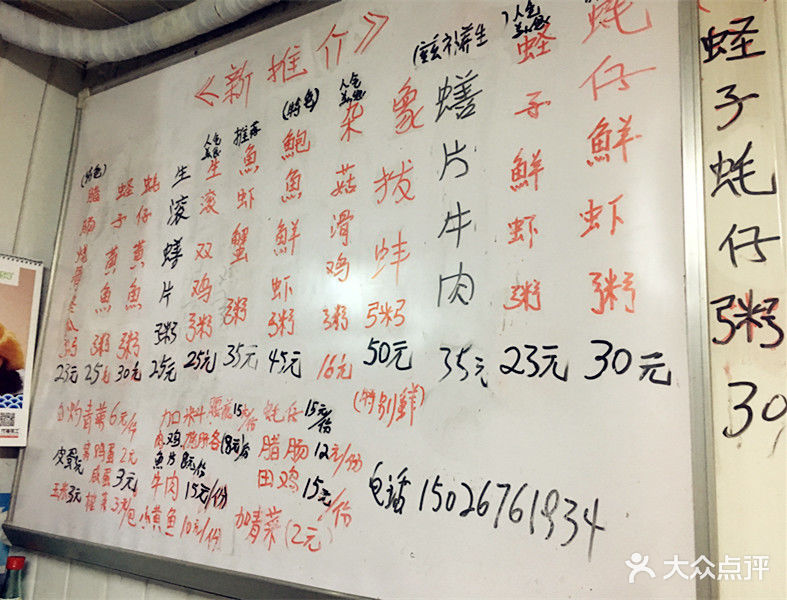 《新推介》
蚝仔鮮虾粥 30元
人气
蛏子鮮虾粥 23元
蟮片牛肉 35元
象拔蚌粥 50元
(特别鮮)
人气
杂菇滑鸡粥 16元
(特色)
鮑魚鮮虾粥 45元
推荐
魚虾蟹粥 35元
人气
生滚双鸡粥 25元
生滚蟮片粥 25元
蚝仔黄魚粥 30元
蛏子黄魚粥 25元
(特色)
腊肠 粥 23元
白灼青菜 6元/份
鸡蛋 2元
皮蛋
咸蛋 3元
玉米 3元
加口料
15元/份
蚝仔 15元/份
鸡
8元/份
魚片 8元/份
腊肠 12元/份
牛肉 15元/份
田鸡 15元/份
小黄鱼 10元/份
加青菜(2元)
电话 15026761934
蛏子蚝仔粥 30
大众点评